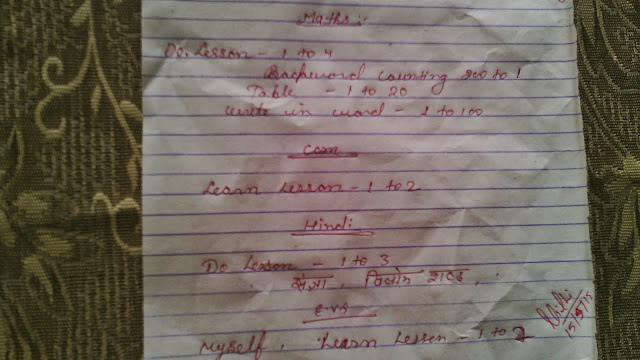 Maths :-
Do. Lesson - 1 to 4
Backword counting 200 to 1
Table - 1 to 20
write in word - 1 to 100
Com
Learn Lesson - 1 to 2
Hindi
Do Lesson - 1 to 3
संज्ञा, विलोम शब्द,
E.V.S
Myself, Learn Lesson - 1 to 2
15/5/15